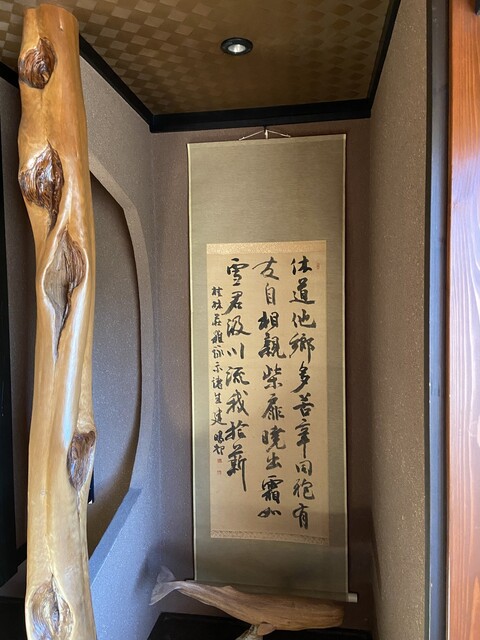 休道他鄉多苦辛同袍有
友自相親柴扉曉出霜如
雪君汲川流我拾薪
桂林莊雜詠示諸生